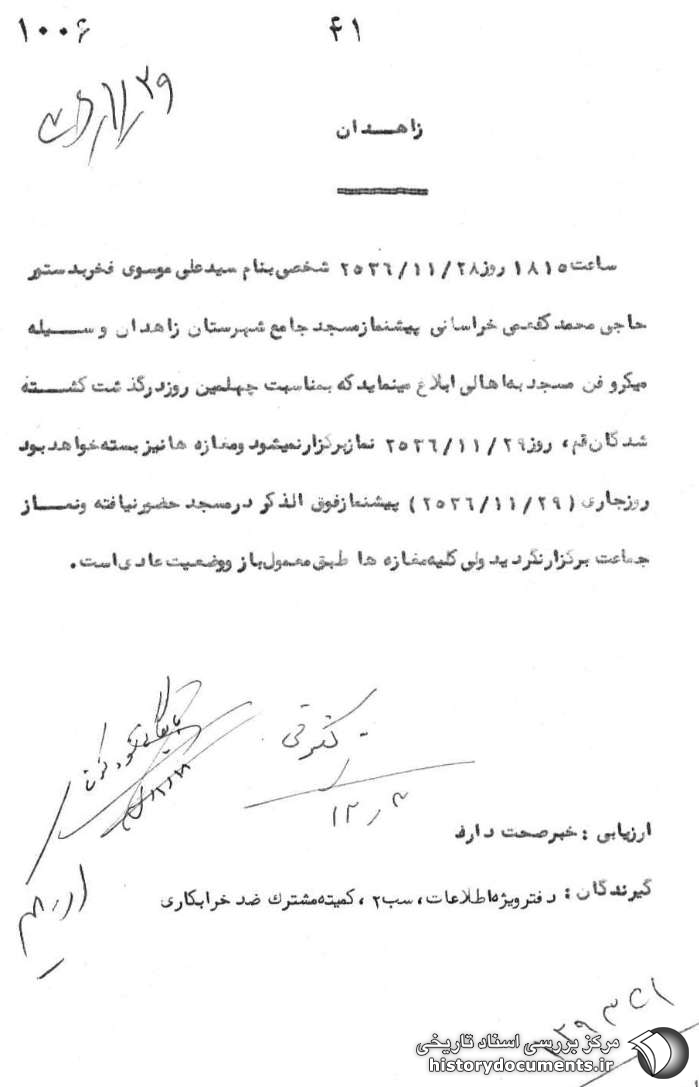 ۴۱
۱۰۰۶
زاهـدان
ساعت ۱۸۱۵ روز ۲۵۳۶/۱۱/۲۸ شخصی بنام سید علی موسوی فخر بدستور
حاجی محمد کفعمی خراسانی پیشنماز مسجد جامع شهرستان زاهدان وسـیله
میکروفن مسجد به اهالی ابلاغ مینماید که بمناسبت چهلمین روز درگذشت کشـته
شدگان قم، روز ۲۵۳۶/۱۱/۲۹ نماز برگزار نمیشود ومغازه ها نیز بسته خواهد بود
روزجاری (۲۵۳۶/۱۱/۲۹) پیشنماز فوق الذکر در مسجد حضور نیافته ونمـاز
جماعت برگزار نگردید ولی کلیه مغازه ها طبق معمول باز ووضعیت عادی است.
ارزیابی : خبر صحت دارد
گیرندگان : دفتر ویژه اطلاعات، سب۲، کمیته مشترك ضد خرابکاری
مرکز بررسی اسناد تاریخی
historydocuments.ir